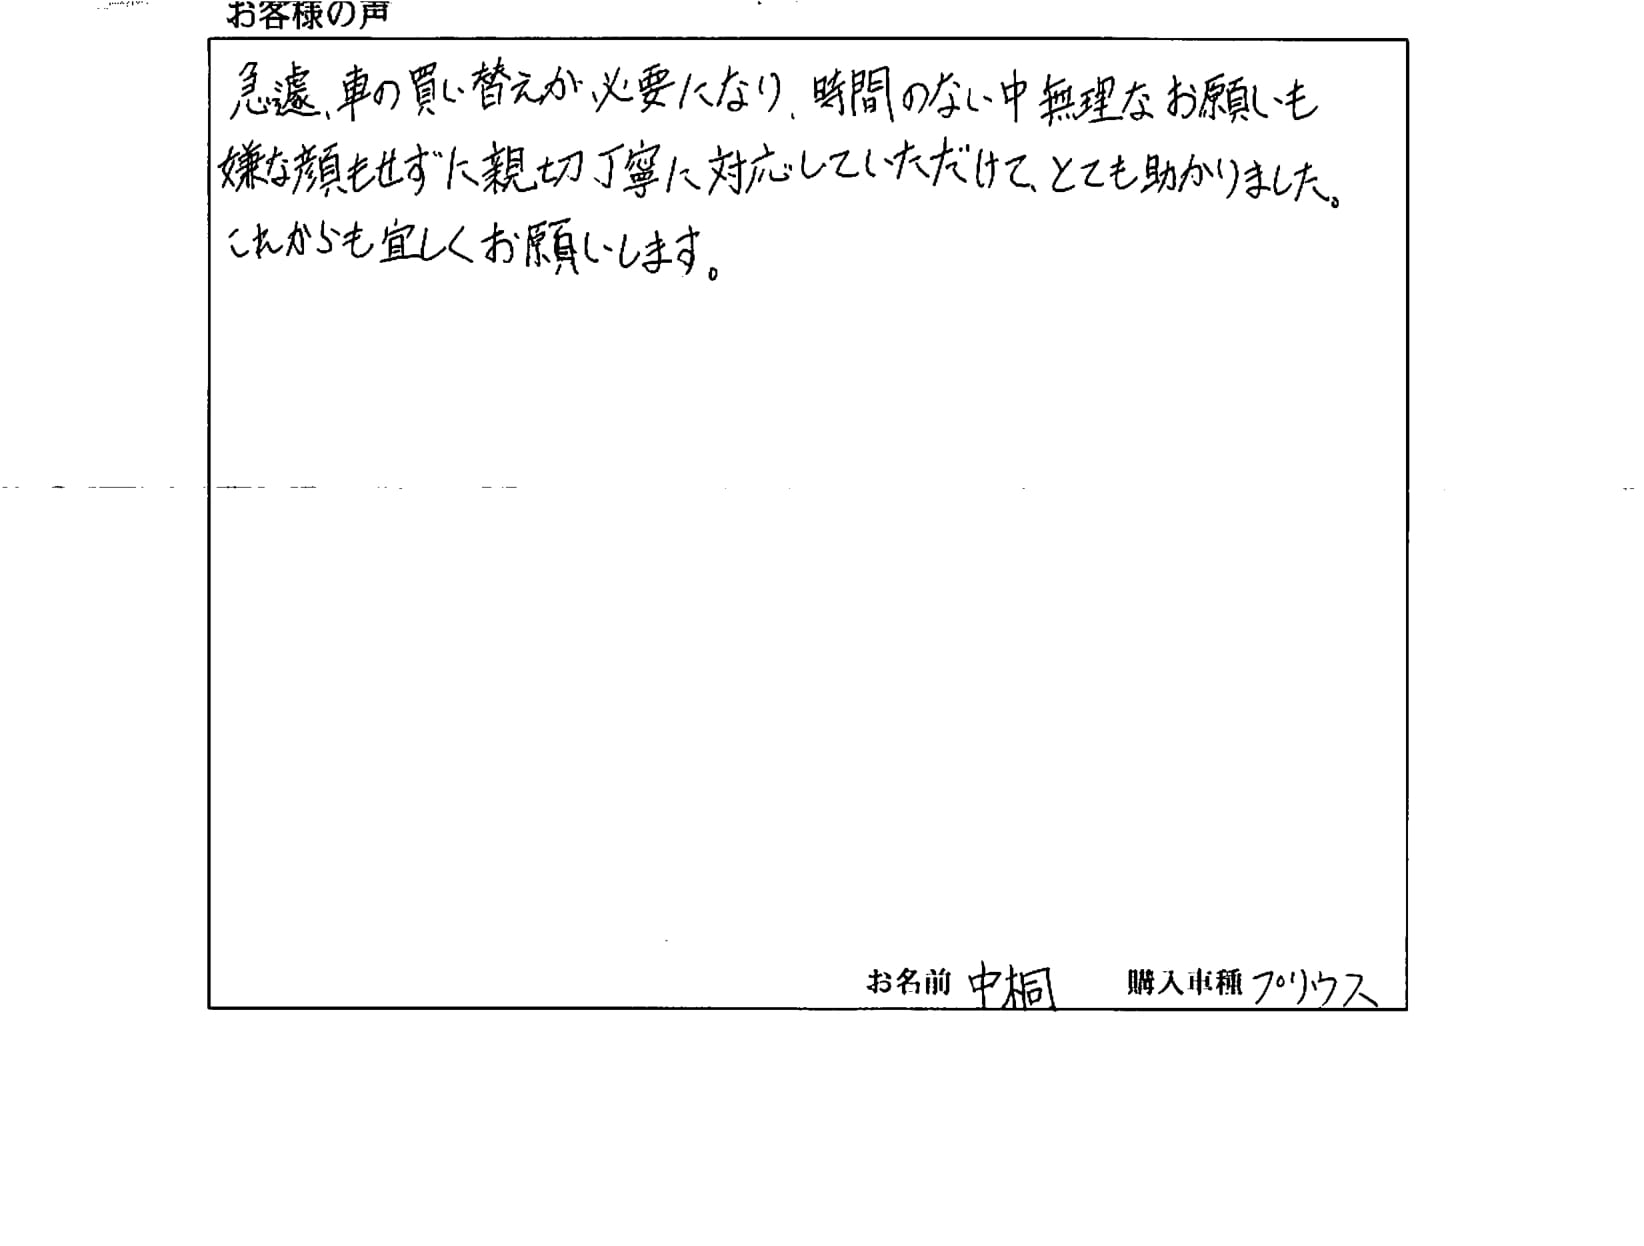 お客様の声
急遽、車の買い替えが必要になり、時間のない中無理なお願いも
嫌な顔もせずに親切丁寧に対応していただけて、とても助かりました。
これからも宜しくお願いします。
お名前 中桐 購入車種 プリウス